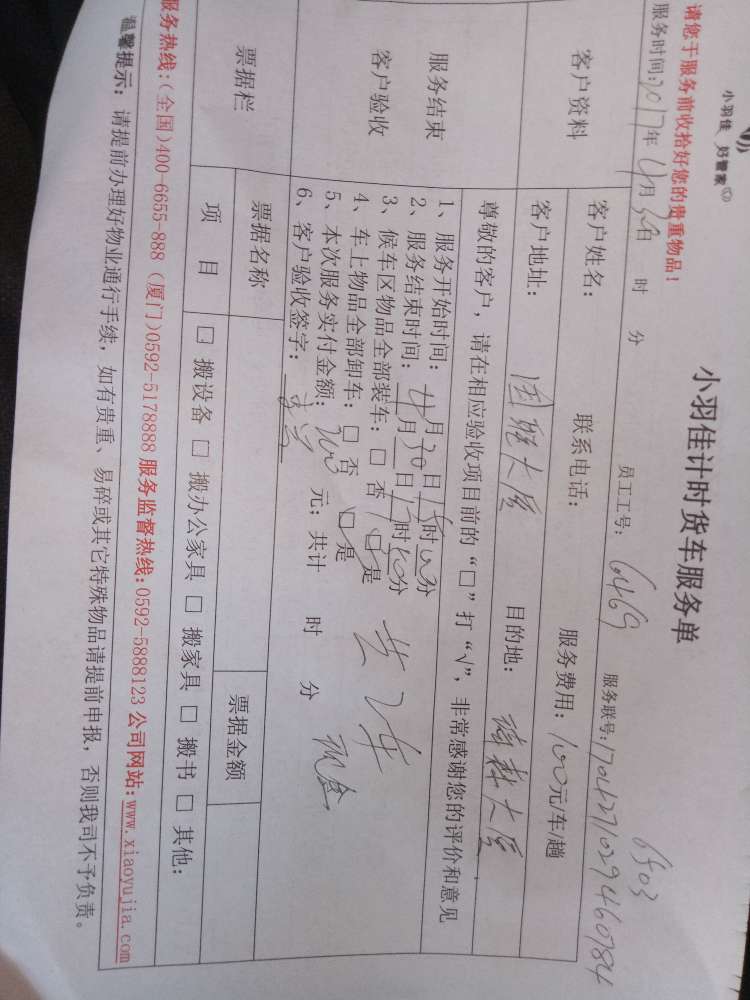 小羽佳 好管家
小羽佳计时货车服务单
6503
请您于服务前收拾好您的贵重物品！
员工工号：6469 服务联号：1704271029460784
服务时间：2017年4月30日 时 分
客户资料
客户姓名： 联系电话： 服务费用：100元/车/趟
客户地址：国联大厦 目的地：
服务结束
客户验收
尊敬的客户，请在相应验收项目前的“□”打“√”，非常感谢您的评价和意见
1、服务开始时间：4月30日 时 分
2、服务结束时间：4月30日 时 分
3、候车区物品全部装车：□ 否 □ 是
4、车上物品全部卸车：□ 否 □ 是
共2车
5、本次服务实付金额：200 元；共计 时 分 现金
6、客户验收签字：
票据栏
票据名称 票据金额
项 目 □ 搬设备 □ 搬办公家具 □ 搬家具 □ 搬书 □ 其他：
服务热线：(全国)400-6655-888 (厦门)0592-5178888 服务监督热线：0592-5888123 公司网站：www.xiaoyujia.com
温馨提示：请提前办理好物业通行手续，如有贵重、易碎或其它特殊物品请提前申报，否则我司不予负责。